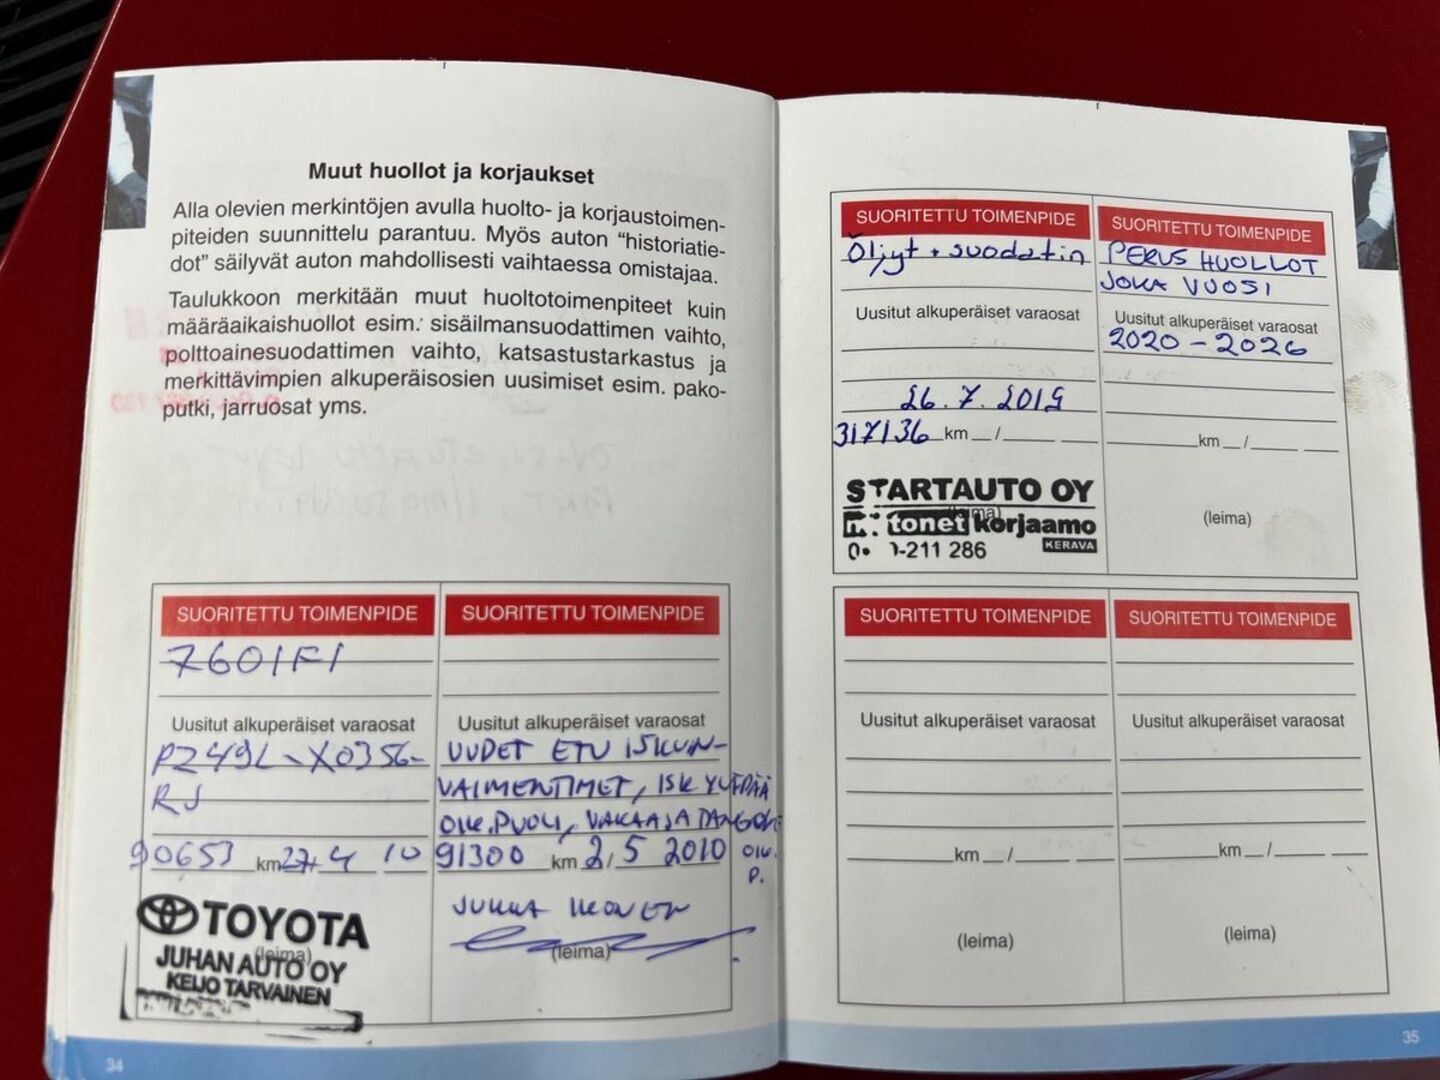 Muut huollot ja korjaukset
Alla olevien merkintöjen avulla huolto- ja korjaustoimen-
piteiden suunnittelu parantuu. Myös auton “historiatie-
dot” säilyvät auton mahdollisesti vaihtaessa omistajaa.
Taulukkoon merkitään muut huoltotoimenpiteet kuin
määräaikaishuollot esim.: sisäilmansuodattimen vaihto,
polttoainesuodattimen vaihto, katsastustarkastus ja
merkittävimpien alkuperäisosien uusimiset esim. pako-
putki, jarruosat yms.
SUORITETTU TOIMENPIDE
7601FI
Uusitut alkuperäiset varaosat
PZ49L-X0356-
RJ
90653 km 27/4 10
TOYOTA
(leima)
JUHAN AUTO OY
KEIJO TARVAINEN
SUORITETTU TOIMENPIDE
Uusitut alkuperäiset varaosat
UUDET ETU ISKUN-
VAIMENTIMET, ISK YLÄPÄÄ
OIK. PUOLI, VAKAAJATANGON
91300 km 2/5 2010 OIK.
P.
JUKKA IKONEN
(leima)
34
SUORITETTU TOIMENPIDE
Öljyt + suodatin
Uusitut alkuperäiset varaosat
26.7.2019
317136 km /
STARTAUTO OY
(leima)
tonet korjaamo
-211 286 KERAVA
SUORITETTU TOIMENPIDE
PERUS HUOLLOT
JOKA VUOSI
Uusitut alkuperäiset varaosat
2020 - 2026
km /
(leima)
SUORITETTU TOIMENPIDE
Uusitut alkuperäiset varaosat
km /
(leima)
SUORITETTU TOIMENPIDE
Uusitut alkuperäiset varaosat
km /
(leima)
35